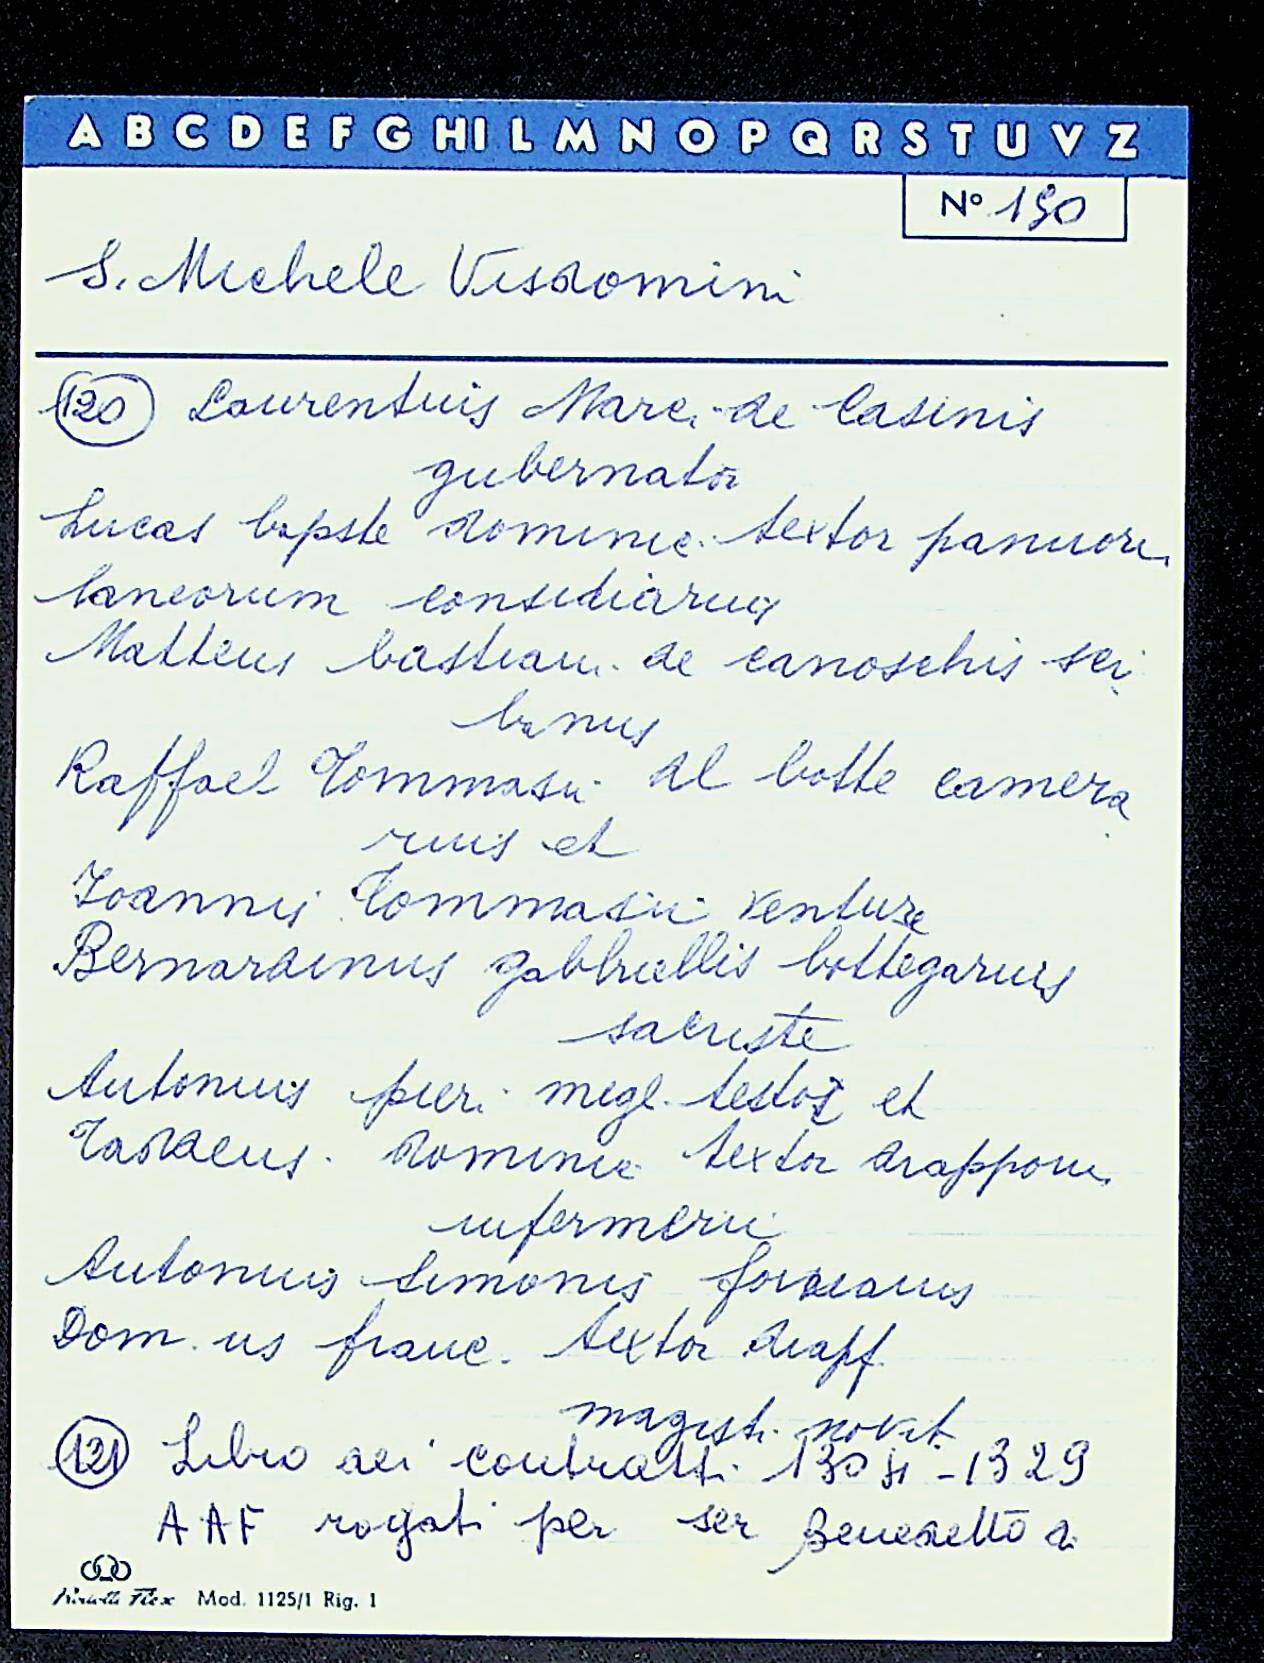 A B C D E F G H I L M N O P Q R S T U V Z
N° 190
S. Michele Visdomini
120 Laurentius Marci de Casinis
gubernator
Lucas bapste dominic. textor pannoru.
laneorum consiliarius
Matteus bastiani de canoschis scri
banus
Raffael Tommasii del botte camera
rius et
Joannis Tommasii venture
Bernardinus gabbriellis bottegarius
sacriste
Antonius pieri megl. testor et
Taddeus dominic textor drapporu.
infermerii
Antonius Simonis
Dom.us franc. textor drapp.
magistri novit.
121 Libro dei contratti -1329
A A F rogati per ser Benedetto d.
Mod. 1125/1 Rig. 1